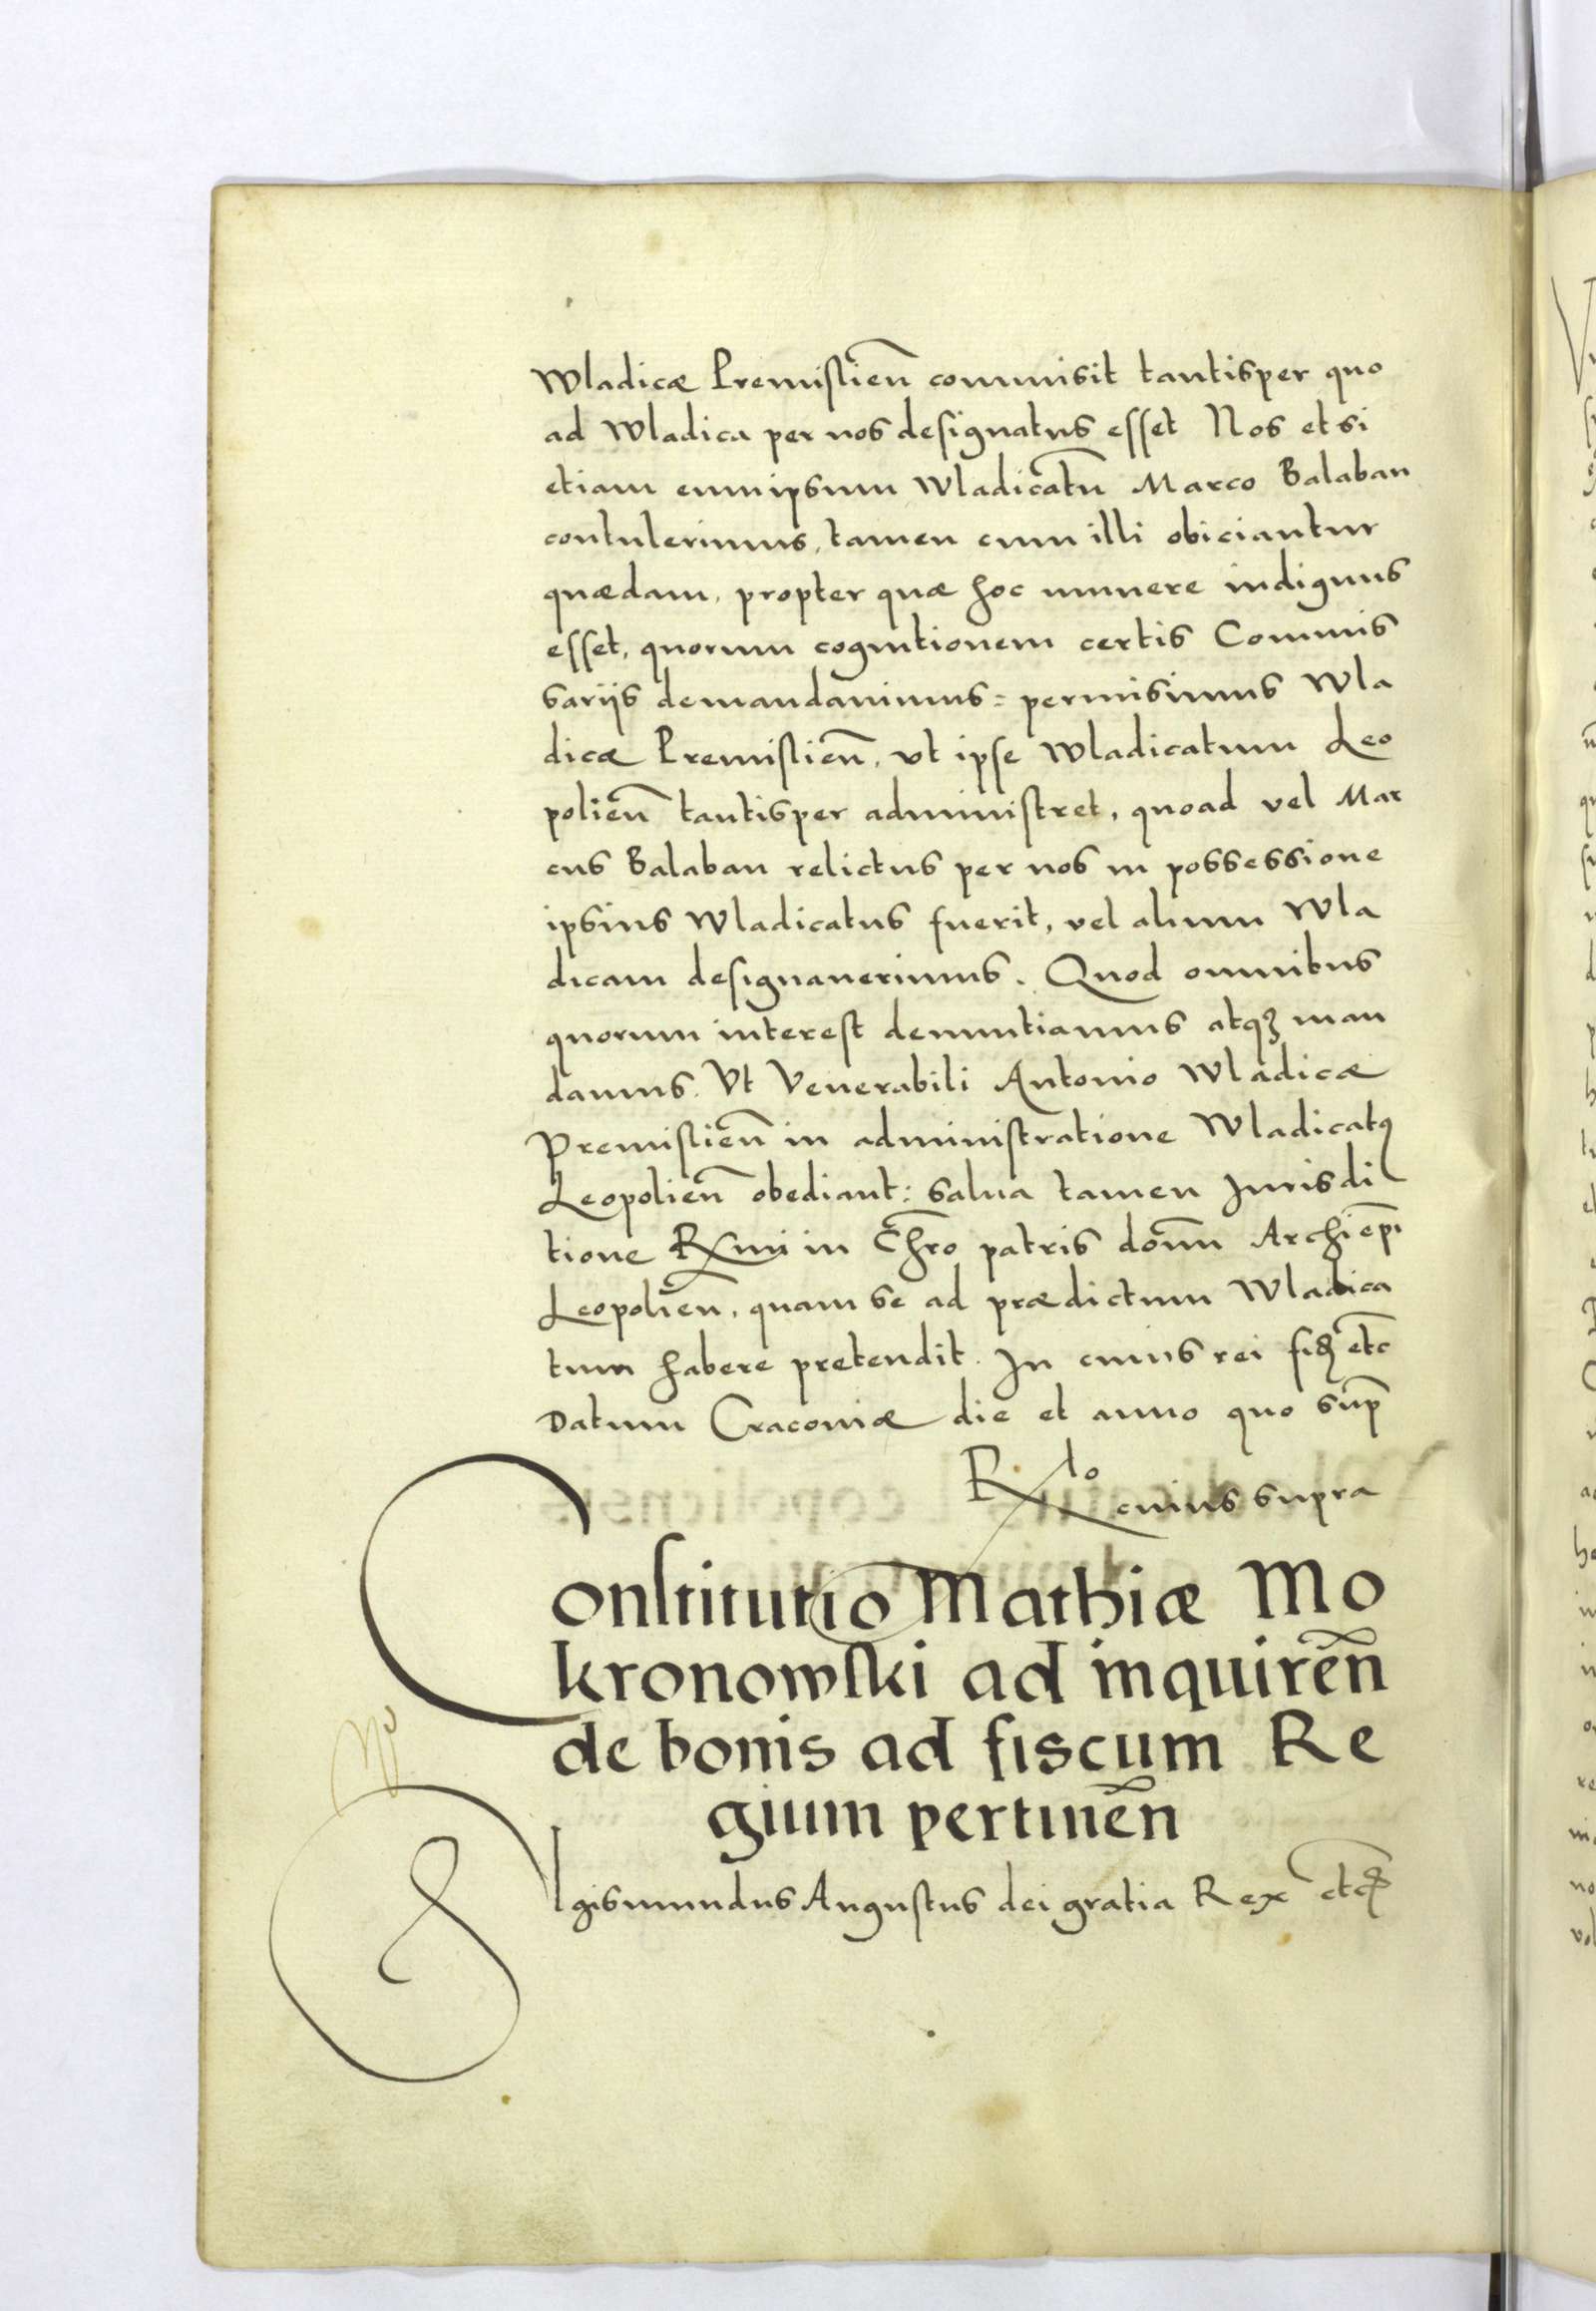 Wladicæ Premislien̄ commisit tantisper quo
ad Wladica per nos designatus esset Nos et si
etiam eumipsum Wladicatū Marco Balaban
contulerimus, tamen cum illi obiciantur
quædam, propter quæ hoc munere indignus
esset, quorum cognitionem certis Commis
sariis demandauimus = permisimus Wla
dicæ Premislien̄, vt ipse Wladicatum Leo
polien̄ tantisper administret, quoad vel Mar
cus Balaban relictus per nos in possessione
ipsius Wladicatus fuerit, vel alium Wla
dicam designauerimus. Quod omnibus
quorum interest denuntiamus atqꝫ man
damus. Vt Venerabili Antonio Wladicæ
Premislien̄ in administratione Wladicatꝰ
Leopolien̄ obediant: salua tamen Jurisdi
tione Rx̄mi in Chr̄o patris dom̄ Archiep̄i
Leopolien̄, quam se ad prædictum Wladica
tum habere pretendit. In cuius rei fidꝫ etc̄
Datum Cracouiæ die et anno quo sup̄
R lo
cuius supra
Constitutio Mathiæ Mo
kronowski ad inquiren̄
de bonis ad fiscum Re
gium pertinen̄
Sigismundus Augustus dei gratia Rex etc̄